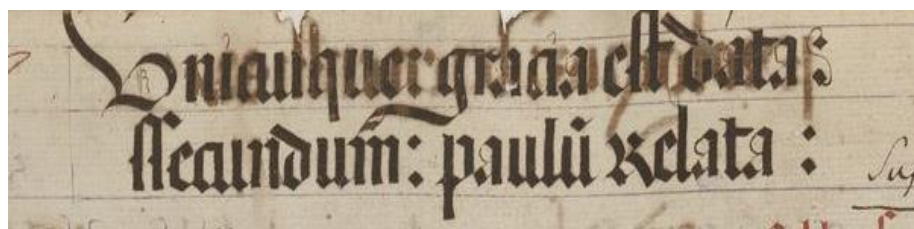 Unicuiquer gracia est data:
ssecundum: paulū Relata :
Sup